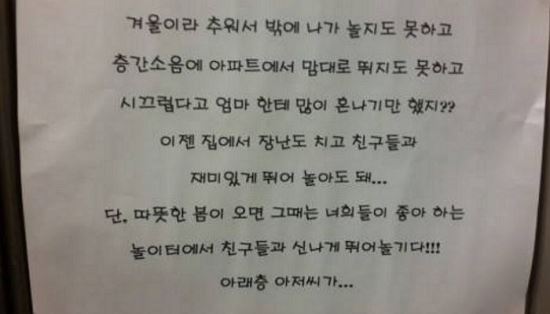 겨울이라 추워서 밖에 나가 놀지도 못하고
층간소음에 아파트에서 맘대로 뛰지도 못하고
시끄럽다고 엄마 한테 많이 혼나기만 했지??
이젠 집에서 장난도 치고 친구들과
재미있게 뛰어 놀아도 돼...
단, 따뜻한 봄이 오면 그때는 너희들이 좋아 하는
놀이터에서 친구들과 신나게 뛰어놀기다!!!
아래층 아저씨가...